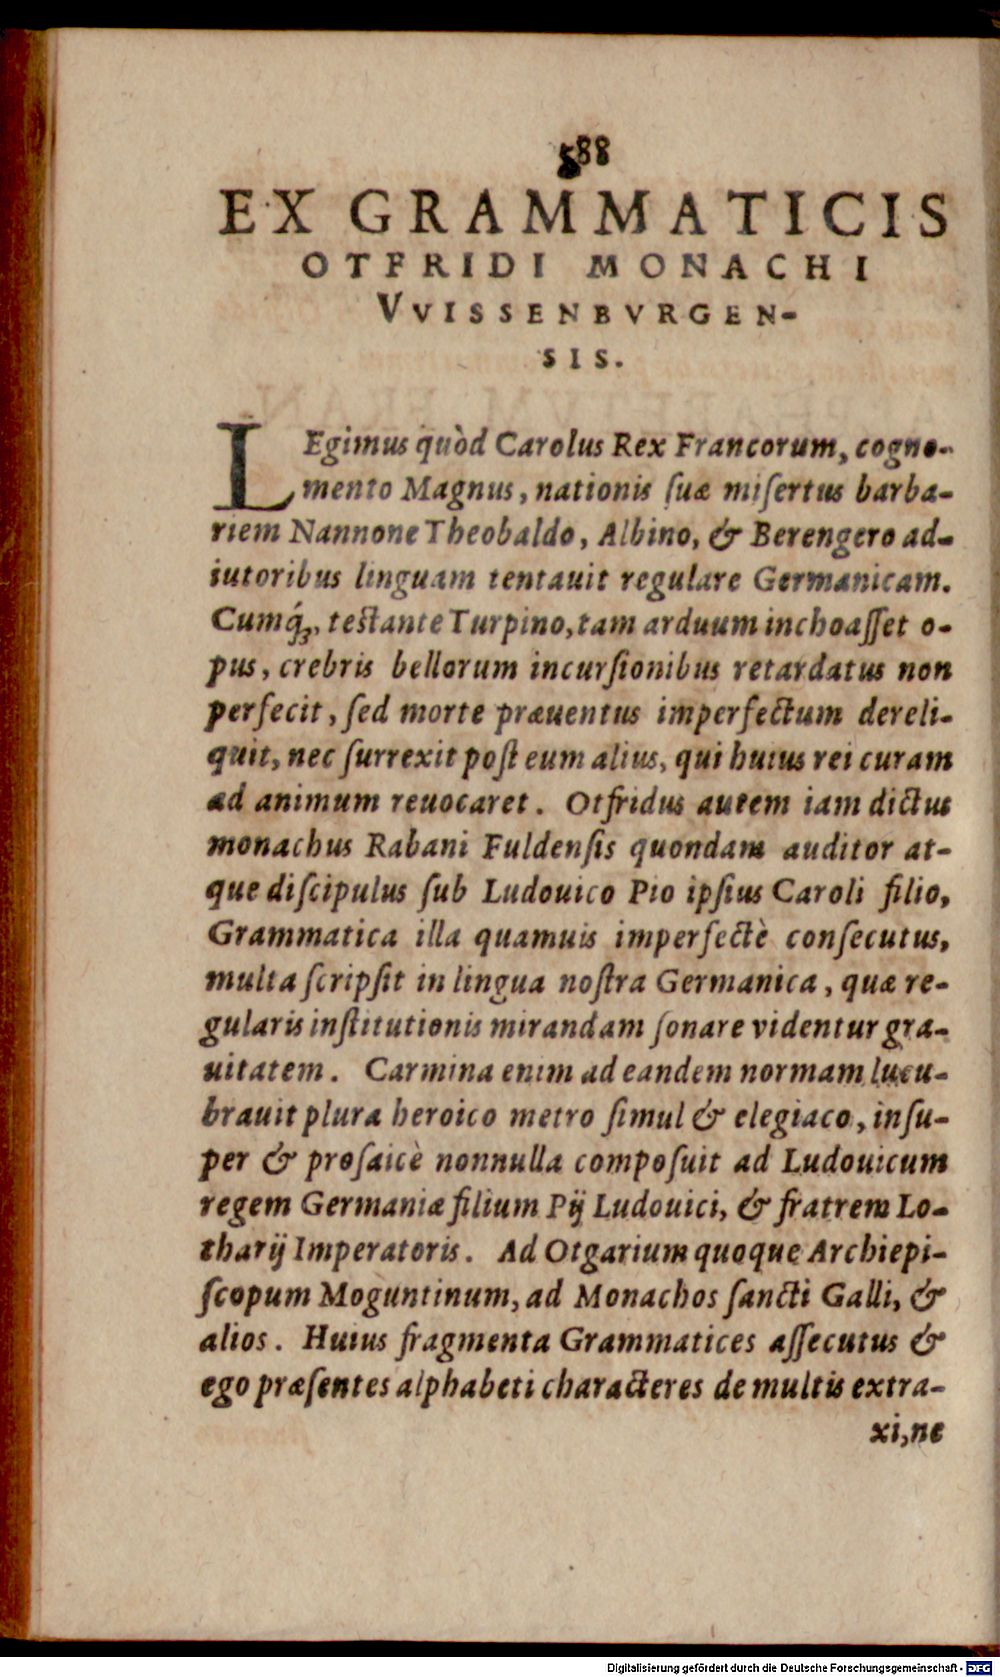 588
EX GRAMMATICIS
OTFRIDI MONACHI
VVISSENBVRGEN-
SIS.
LEgimus quòd Carolus Rex Francorum, cogno-
mento Magnus, nationis ſuæ miſertus barba-
riem Nannone Theobaldo, Albino, & Berengero ad-
iutoribus linguam tentauit regulare Germanicam.
Cumq́ꝫ, teſtante Turpino, tam arduum inchoaſſet o-
pus, crebris bellorum incurſionibus retardatus non
perfecit, ſed morte præuentus imperfectum dereli-
quit, nec ſurrexit poſt eum alius, qui huius rei curam
ad animum reuocaret. Otfridus autem iam dictus
monachus Rabani Fuldenſis quondam auditor at-
que diſcipulus ſub Ludouico Pio ipſius Caroli filio,
Grammatica illa quamuis imperfectè conſecutus,
multa ſcripſit in lingua noſtra Germanica, quæ re-
gularis inſtitutionis mirandam ſonare videntur gra-
uitatem. Carmina enim ad eandem normam lucu-
brauit plura heroico metro ſimul & elegiaco, inſu-
per & proſaicè nonnulla compoſuit ad Ludouicum
regem Germaniæ filium Pij Ludouici, & fratrem Lo-
tharij Imperatoris. Ad Otgarium quoque Archiepi-
ſcopum Moguntinum, ad Monachos ſancti Galli, &
alios. Huius fragmenta Grammatices aſſecutus &
ego præſentes alphabeti characteres de multis extra-
xi, ne
Digitalisierung gefördert durch die Deutsche Forschungsgemeinschaft - DFG